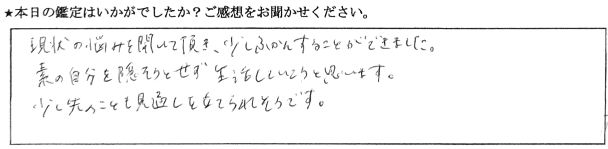 ★本日の鑑定はいかがでしたか？ご感想をお聞かせください。
現状の悩みを聞いて頂き、少しふかんすることができました。
素の自分を隠そうとせず生活していこうと思います。
少し先のことも見通しを立てられそうです。